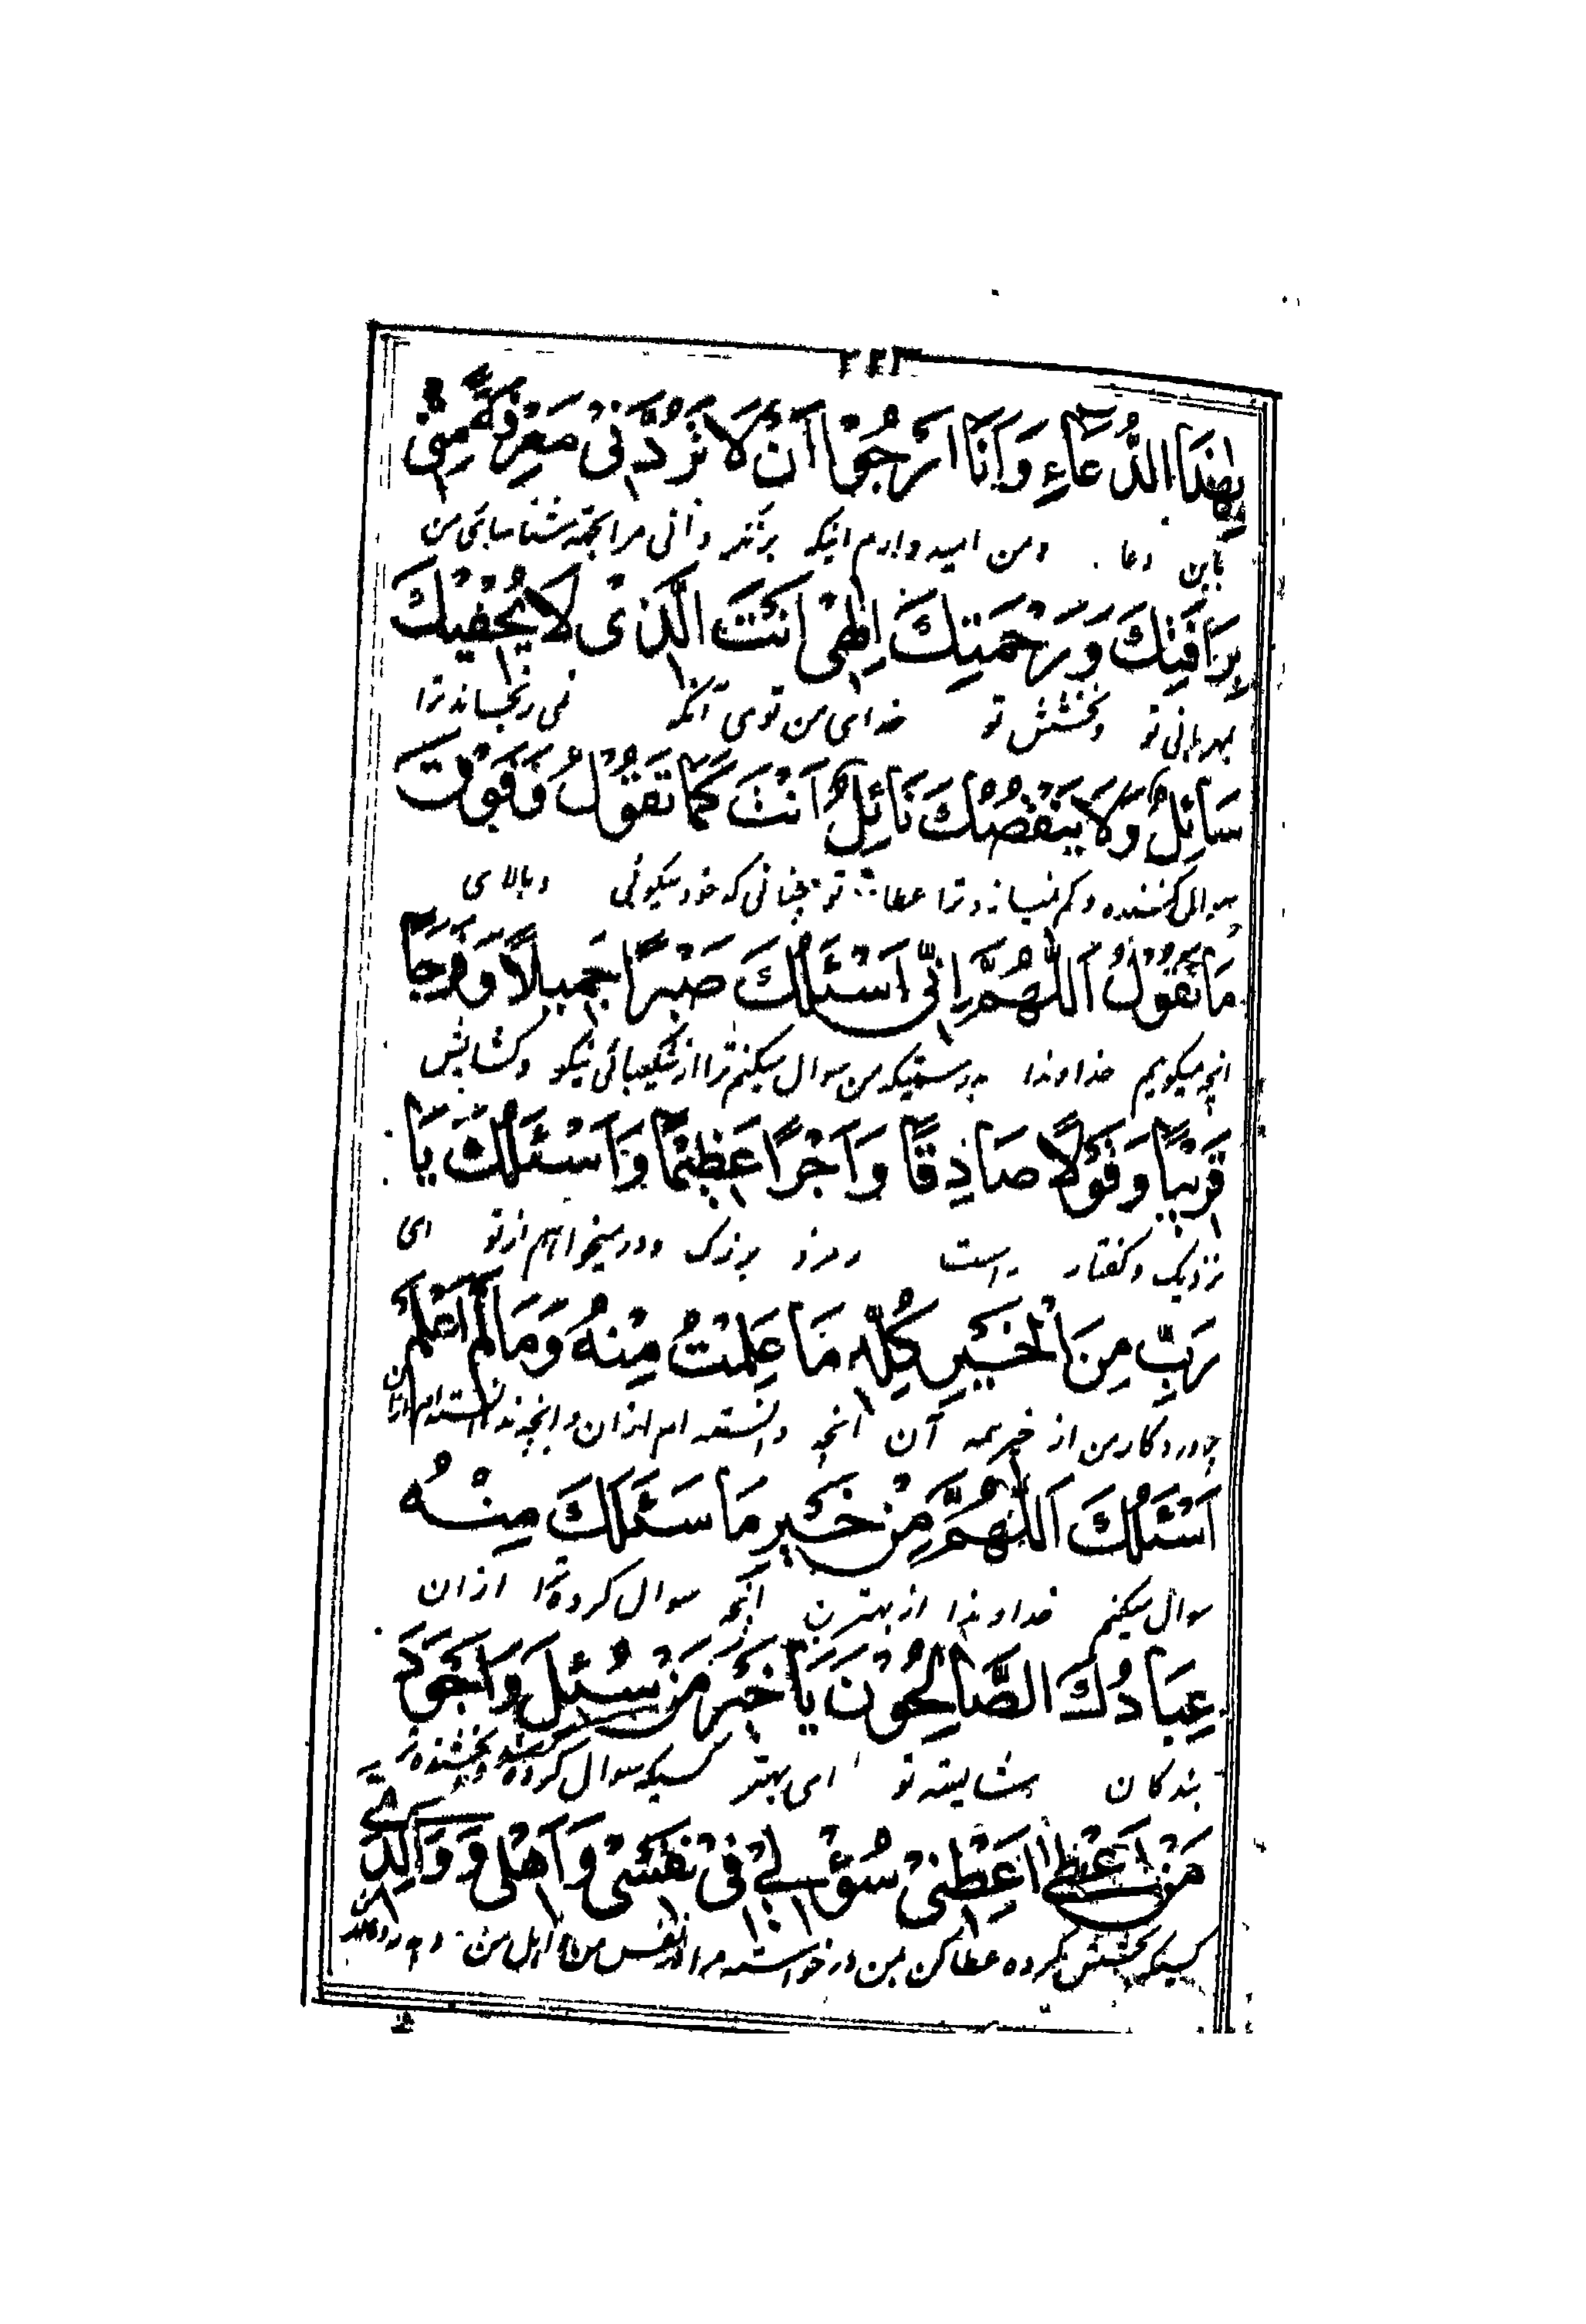 ۲۴۳
بِهٰذَا الدُّعَاءِ وَاَنَا اَرْجُوْا اَنْ لَا تَرُدَّنِیْ مَعْرِفَةً مِنِّیْ
باین دعا و من امید وارم اینکه برنگر دانی مرا بجهة شناسائی من
بِرَافَتِكَ وَرَحْمَتِكَ اِلٰهِیْ اَنْتَ الَّذِیْ لَا یُحْفِیْكَ
بمهربانی تو و بخشش تو خدای من توی آنکه نمی رنجاند ترا
سَائِلٌ وَلَا یَنْقُصُكَ نَائِلٌ اَنْتَ كَمَا تَقُوْلُ وَفَوْقَ
سوال کننده و کم نمیسازد ترا عطا تو چنانی که خود میگوئی و بالای
مَا نَقُوْلُ اَللّٰهُمَّ اِنِّیْ اَسْئَلُكَ صَبْرًا جَمِیلًا وَفَرَجًا
انچه میگویم خداوندا بدرستیکه من سوال میکنم ترا از شکیبائی نیکو و کشایش
قَرِیْبًا وَقَوْلًا صَادِقًا وَاَجْرًا عَظِیْمًا وَاَسْئَلُكَ یَا
نزدیک و گفتار راست و مزد بزرک و در میخواهم از تو ای
رَبِّ مِنَ الْخَیْرِ كُلِّهِ مَا عَلِمْتُ مِنْهُ وَمَا لَمْ اَعْلَمْ
پروردگار من از خیر همه آن انچه دانسته ام ازان و انچه ندانسته ام ازان
اَسْئَلُكَ اَللّٰهُمَّ مِنْ خَیْرِ مَا سَئَلَكَ مِنْهُ
سوال میکنم خداوندا از بهترین آنچه سوال کرده ترا ازان
عِبَادُكَ الصَّالِحُوْنَ یَا خَیْرَ مَنْ سُئِلَ وَاَجْوَدَ
بندکان شایسته تو ای بهتر کسیکه سوال کرده شد و بخشنده تر
مَنْ اَعْطٰی اَعْطِنِیْ سُؤْلِیْ فِیْ نَفْسِیْ وَاَهْلِیْ وَوَالِدَیَّ
کسیکه بخشش کرده عطا کن بمن درخواست مرا در نفس من و اهل من و پدر و مادر من